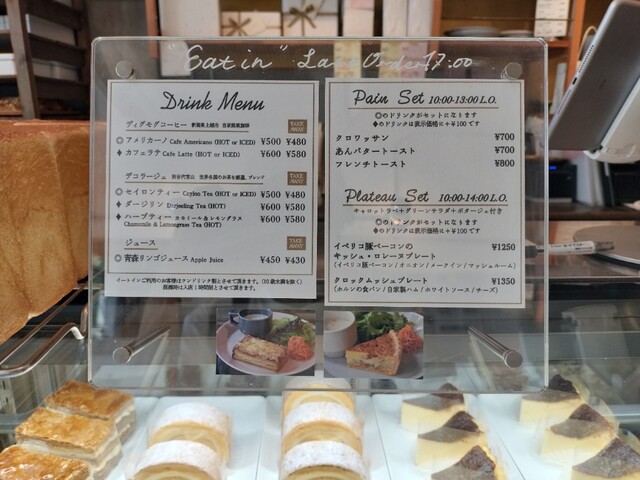 "Eat in" Last Order 17:00
Drink Menu
ディグモグコーヒー
TAKE AWAY
◎アメリカーノ Cafe Americano (HOT or ICED) ¥500 ¥480
♦カフェラテ Cafe Latte (HOT or ICED) ¥600 ¥580
デコラージュ
TAKE AWAY
◎セイロンティー Ceylon Tea (HOT or ICED) ¥500 ¥480
♦ダージリン Darjeeling Tea (HOT) ¥600 ¥580
♦ハーブティー カモミール&レモングラス ¥600 ¥580
Chamomile & Lemongrass Tea (HOT)
ジュース
TAKE AWAY
◎青森リンゴジュース Apple Juice ¥450 ¥430
イートインご利用のお客様はワンドリンク制とさせて頂きます。(10歳未満を除く)
混雑時は入店1時間制とさせて頂きます。
Pain Set 10:00-13:00 L.O.
◎のドリンクがセットになります
♦のドリンクは表示価格に+¥100です
クロワッサン ¥700
あんバタートースト ¥700
フレンチトースト ¥800
Plateau Set 10:00-14:00 L.O.
キャロットラペ+グリーンサラダ+ポタージュ付き
◎のドリンクがセットになります
♦のドリンクは表示価格に+¥100です
イベリコ豚ベーコンの ¥1250
キッシュ・ロレーヌプレート
(イベリコ豚ベーコン/オニオン/メークイン/マッシュルーム)
クロックムッシュプレート ¥1350
(ホルンの食パン/自家製ハム/ホワイトソース/チーズ)